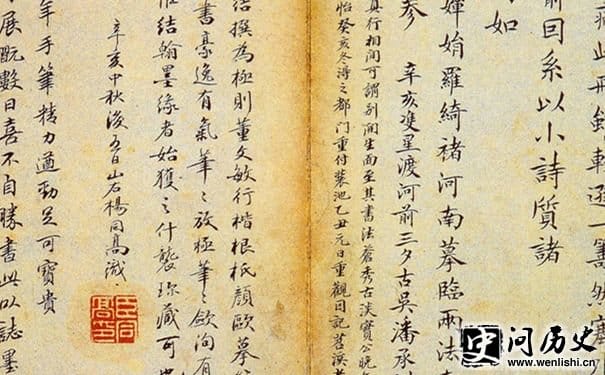 此册
前回系以小詩質諸
如
婵娟羅綺褚河南摹臨兩法
參 辛亥雙星渡河前三夕古吳潘承
真行相間可謂別開生面至其書法蒼秀古淡實公晚
怡癸亥冬得之都門重付裝池乙丑元日重觀因記苕溪
結撰為極則董文敏行楷根柢顏歐摹
書豪逸有氣筆〻放極筆〻斂洵有
結翰墨緣者始獲之什襲珍藏可
辛亥中秋後五日山右楊同高識
年手筆精力遒勁足可寶貴
展翫數日喜不自勝書此以誌墨
问历史
www.wenlishi.com